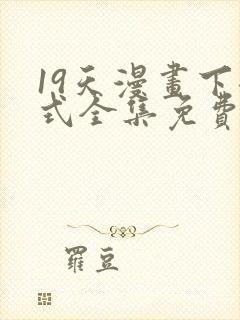 19天漫畫下
式全集免費
羅豆